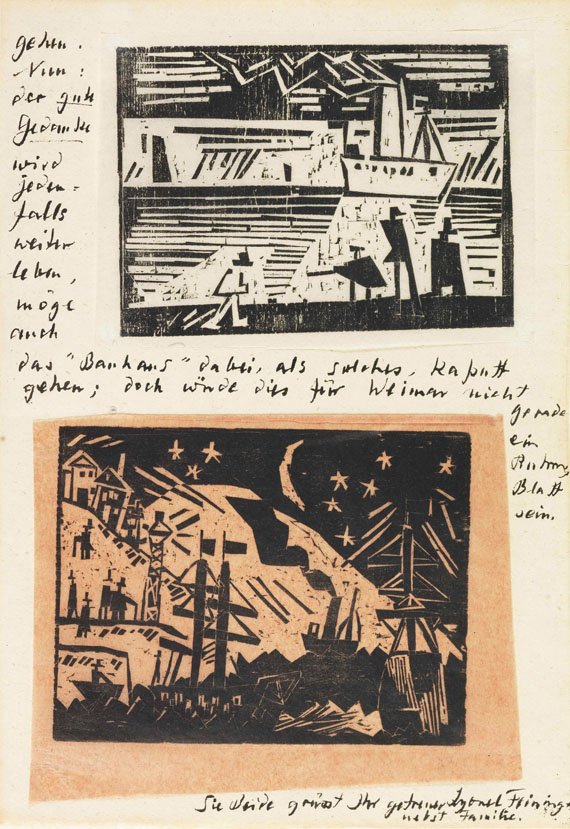 gehen.
Nun:
der gute
Gedanke
wird
jeden=
falls
weiter
leben,
möge
auch
das "Bauhaus" dabei, als solches, kaputt
gehen; doch würde dies für Weimar nicht
gerade
ein
Ruhmes
Blatt
sein.
Sie Beide grüsst Ihr getreuer Lyonel Feininger
nebst Familie.